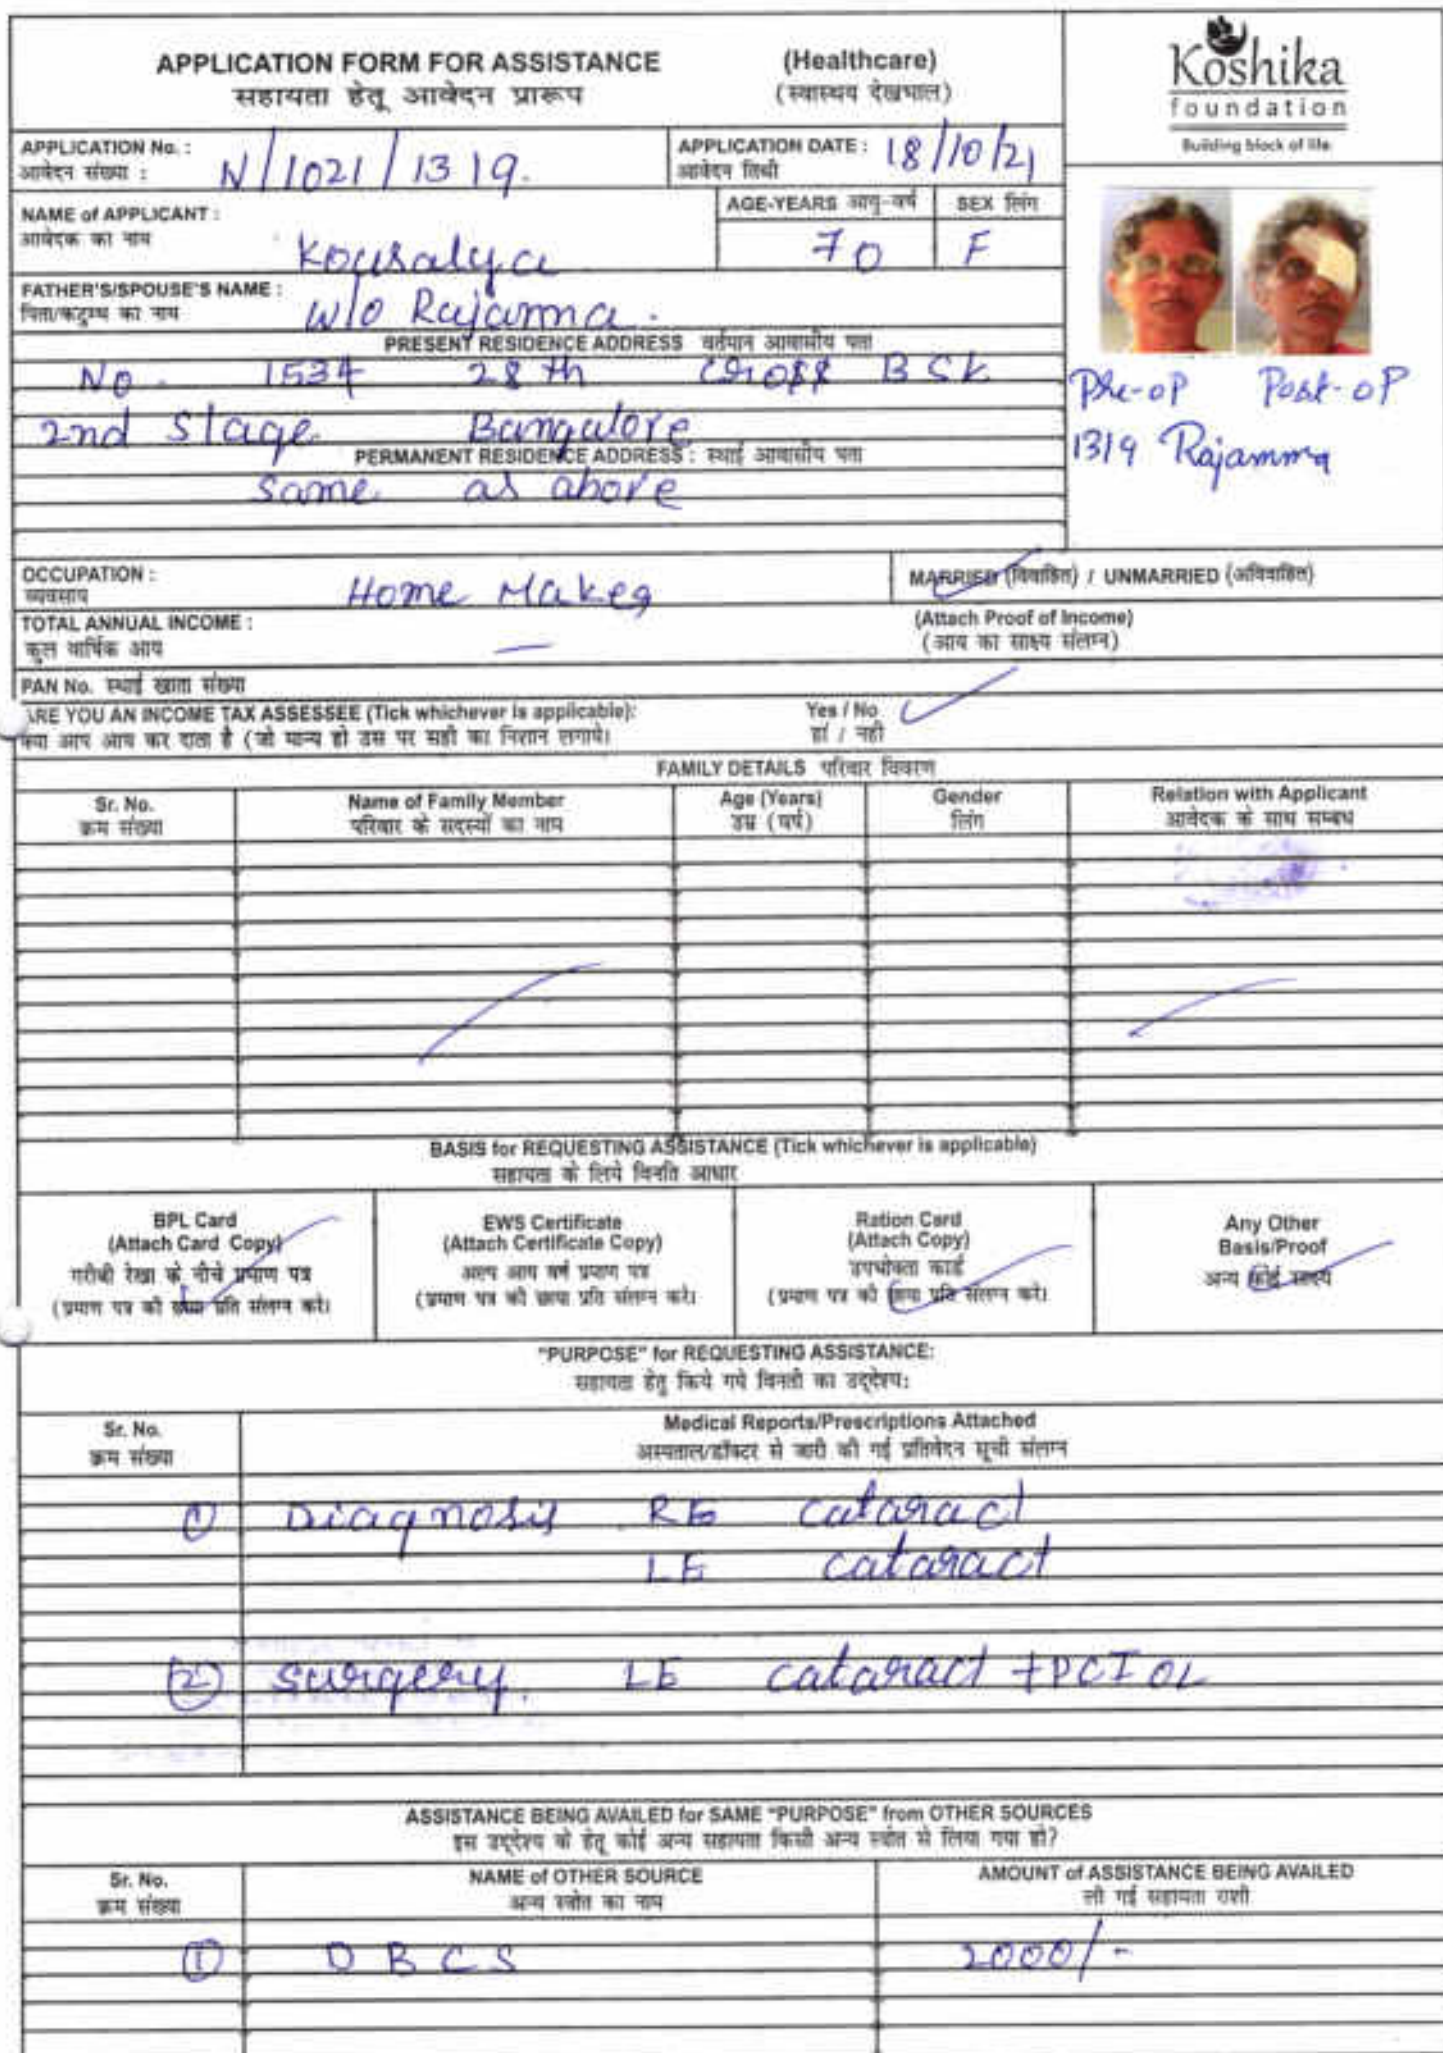 APPLICATION FORM FOR ASSISTANCE (Healthcare)
सहायता हेतू आवेदन प्रारूप (स्वास्थय देखभाल)
Koshika
foundation
Building block of life
APPLICATION No. : N/1021/1319.
आवेदन संख्या :
APPLICATION DATE : 18/10/21
आवेदन तिथी
NAME of APPLICANT : Kousalya
आवेदक का नाम
AGE-YEARS आयु-वर्ष 70
SEX लिंग F
FATHER'S/SPOUSE'S NAME : W/o Rajamma.
पिता/कटुम्ब का नाम
PRESENT RESIDENCE ADDRESS वर्तमान आवासीय पता
No. 1534 28th Cross BSK
2nd Stage Bangalore
PERMANENT RESIDENCE ADDRESS : स्थाई आवासीय पता
Same as above
Pre-op Post-op
1319 Rajamma
OCCUPATION : Home Maker
व्यवसाय
MARRIED (विवाहित) / UNMARRIED (अविवाहित)
TOTAL ANNUAL INCOME : —
कुल वार्षिक आय
(Attach Proof of Income)
(आय का साक्ष्य संलग्न)
PAN No. स्थाई खाता संख्या
ARE YOU AN INCOME TAX ASSESSEE (Tick whichever is applicable): Yes / No
क्या आप आय कर दाता है (जो मान्य हो उस पर सही का निशान लगाये। हां / नही
FAMILY DETAILS परिवार विवरण
Sr. No. Name of Family Member Age (Years) Gender Relation with Applicant
क्रम संख्या परिवार के सदस्यों का नाम उम्र (वर्ष) लिंग आवेदक के साथ सम्बध
BASIS for REQUESTING ASSISTANCE (Tick whichever is applicable)
सहायता के लिये विनति आधार
BPL Card
(Attach Card Copy)
गरीबी रेखा के नीचे प्रमाण पत्र
(प्रमाण पत्र की छाया प्रति संलग्न करे।
EWS Certificate
(Attach Certificate Copy)
अल्प आय वर्ष प्रमाण पत्र
(प्रमाण पत्र की छाया प्रति संलग्न करे।
Ration Card
(Attach Copy)
उपभोक्ता कार्ड
(प्रमाण पत्र की छाया प्रति संलग्न करे।
Any Other
Basis/Proof
अन्य कोई साक्ष्य
"PURPOSE" for REQUESTING ASSISTANCE:
सहायता हेतु किये गये विनती का उद्देश्य:
Sr. No. Medical Reports/Prescriptions Attached
क्रम संख्या अस्पताल/डॉक्टर से जारी की गई प्रतिवेदन सूची संलग्न
① Diagnosis RE cataract
LE cataract
② Surgery. LE cataract + PCIOL
ASSISTANCE BEING AVAILED for SAME "PURPOSE" from OTHER SOURCES
इस उद्देश्य के हेतू कोई अन्य सहायता किसी अन्य स्त्रोत से लिया गया हो?
Sr. No. NAME of OTHER SOURCE AMOUNT of ASSISTANCE BEING AVAILED
क्रम संख्या अन्य स्त्रोत का नाम ली गई सहायता राशी
① DBCS 2000/-